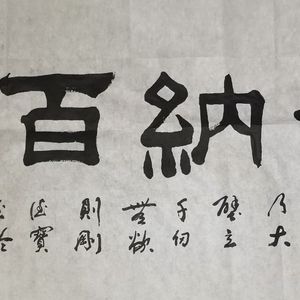 納百
乃大
壁立
千仞
無欲
則剛
寶